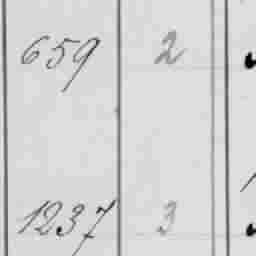 659 2
1237 3